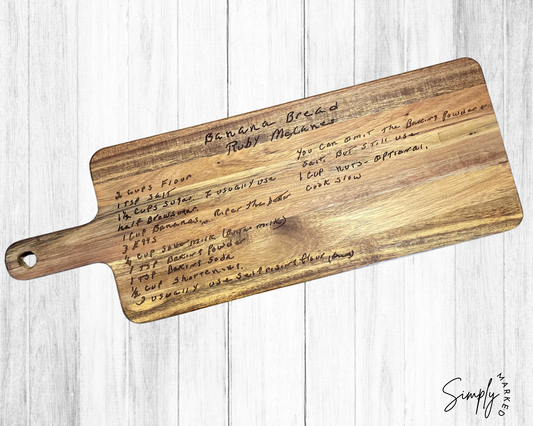 Banana Bread
Ruby McCanes
2 cups Flour
1 TSP Salt
1½ cups Sugar. I usually use
half Brown sugar
1 cup Bananas, Riper the better
2 Eggs
½ cup Sour milk (Butter milk)
1 TSP Baking Powder
1 TSP Baking Soda
½ cup Shortening.
I usually use Self rising flour
You can omit the Baking Powder +
Salt. But still use
1 cup nuts - optional.
Cook slow
Simply
MARKED